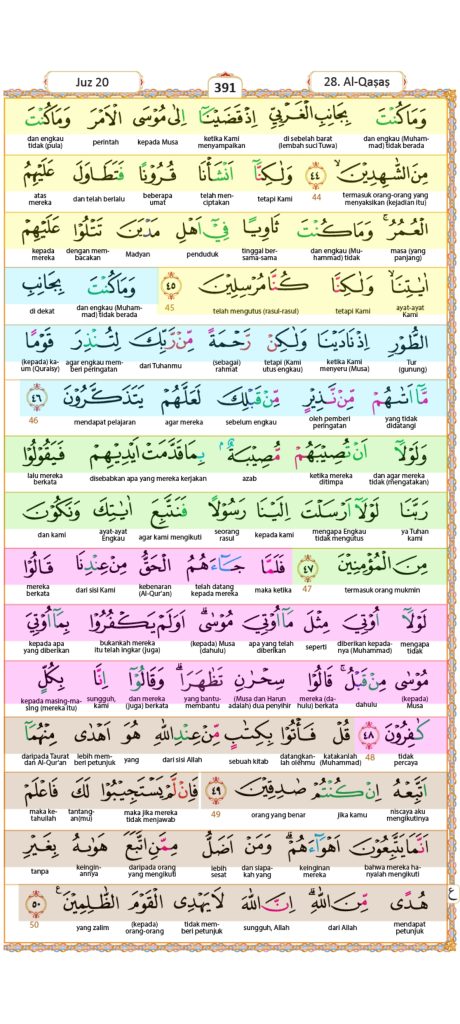 Juz 20
391
28. Al-Qaṣaṣ
وَمَا كُنْتَ بِجَانِبِ الْغَرْبِيِّ اِذْ قَضَيْنَآ اِلٰى مُوْسَى الْاَمْرَ وَمَا كُنْتَ
dan engkau (Muham-mad) tidak berada di sebelah barat (lembah suci Tuwa) ketika Kami menyampaikan kepada Musa perintah dan engkau tidak (pula)
مِنَ الشّٰهِدِيْنَ ۙ ٤٤ وَلٰكِنَّآ اَنْشَأْنَا قُرُوْنًا فَتَطَاوَلَ عَلَيْهِمُ
termasuk orang-orang yang menyaksikan (kejadian itu) 44 tetapi Kami telah men-ciptakan beberapa umat dan telah berlalu atas mereka
الْعُمُرُۚ وَمَا كُنْتَ ثَاوِيًا فِيْٓ اَهْلِ مَدْيَنَ تَتْلُوْا عَلَيْهِمْ
masa (yang panjang) dan engkau (Mu-hammad) tidak tinggal ber-sama-sama penduduk Madyan dengan mem-bacakan kepada mereka
اٰيٰتِنَاۙ وَلٰكِنَّا كُنَّا مُرْسِلِيْنَ ٤٥ وَمَا كُنْتَ بِجَانِبِ
ayat-ayat Kami tetapi Kami telah mengutus (rasul-rasul) 45 dan engkau (Muham-mad) tidak berada di dekat
الطُّوْرِ اِذْ نَادَيْنَا وَلٰكِنْ رَّحْمَةً مِّنْ رَّبِّكَ لِتُنْذِرَ قَوْمًا
Tur (gunung) ketika Kami menyeru (Musa) tetapi (Kami utus engkau) (sebagai) rahmat dari Tuhanmu agar engkau mem-beri peringatan (kepada) ka-um (Quraisy)
مَّآ اَتٰىهُمْ مِّنْ نَّذِيْرٍ مِّنْ قَبْلِكَ لَعَلَّهُمْ يَتَذَكَّرُوْنَ ٤٦
yang tidak didatangi oleh pemberi peringatan sebelum engkau agar mereka mendapat pelajaran 46
وَلَوْلَآ اَنْ تُصِيْبَهُمْ مُّصِيْبَةٌ ۢبِمَا قَدَّمَتْ اَيْدِيْهِمْ فَيَقُوْلُوْا
dan agar mereka tidak (mengatakan) ketika mereka ditimpa azab disebabkan apa yang mereka kerjakan lalu mereka berkata
رَبَّنَا لَوْلَآ اَرْسَلْتَ اِلَيْنَا رَسُوْلًا فَنَتَّبِعَ اٰيٰتِكَ وَنَكُوْنَ
ya Tuhan kami mengapa Engkau tidak mengutus kepada kami seorang rasul agar kami mengikuti ayat-ayat Engkau dan kami
مِنَ الْمُؤْمِنِيْنَ ٤٧ فَلَمَّا جَاۤءَهُمُ الْحَقُّ مِنْ عِنْدِنَا قَالُوْا
termasuk orang mukmin 47 maka ketika telah datang kepada mereka kebenaran (Al-Qur'an) dari sisi Kami mereka berkata
لَوْلَآ اُوْتِيَ مِثْلَ مَآ اُوْتِيَ مُوْسٰىۗ اَوَلَمْ يَكْفُرُوْا بِمَآ اُوْتِيَ
mengapa tidak diberikan kepada-nya (Muhammad) seperti apa yang telah diberikan (kepada) Musa (dahulu) bukankah mereka itu telah ingkar (juga) kepada apa yang diberikan
مُوْسٰى مِنْ قَبْلُۚ قَالُوْا سِحْرٰنِ تَظٰهَرَاۗ وَقَالُوْٓا اِنَّا بِكُلٍّ
(kepada) Musa dahulu mereka (da-hulu) berkata (Musa dan Harun adalah) dua penyihir yang bantu-membantu dan mereka (juga) berkata sungguh, kami kepada masing-ma-sing (mereka itu)
كٰفِرُوْنَ ٤٨ قُلْ فَأْتُوْا بِكِتٰبٍ مِّنْ عِنْدِ اللّٰهِ هُوَ اَهْدٰى مِنْهُمَآ
tidak percaya 48 katakanlah (Muhammad) datangkan-lah olehmu sebuah kitab dari sisi Allah yang lebih mem-beri petunjuk daripada Taurat dan Al-Qur'an
اَتَّبِعْهُ اِنْ كُنْتُمْ صٰدِقِيْنَ ٤٩ فَاِنْ لَّمْ يَسْتَجِيْبُوْا لَكَ فَاعْلَمْ
niscaya aku mengikutinya jika kamu orang yang benar 49 maka jika mereka tidak menjawab tantang-an(mu) maka ke-tahuilah
اَنَّمَا يَتَّبِعُوْنَ اَهْوَاۤءَهُمْۗ وَمَنْ اَضَلُّ مِمَّنِ اتَّبَعَ هَوٰىهُ بِغَيْرِ
bahwa mereka ha-nyalah mengikuti keinginan mereka dan siapa-kah yang lebih sesat daripada orang yang mengikuti keingin-annya tanpa
هُدًى مِّنَ اللّٰهِ ۗاِنَّ اللّٰهَ لَا يَهْدِى الْقَوْمَ الظّٰلِمِيْنَ ࣖ ٥٠
mendapat petunjuk dari Allah sungguh, Allah tidak mem-beri petunjuk (kepada) orang-orang yang zalim 50
ع